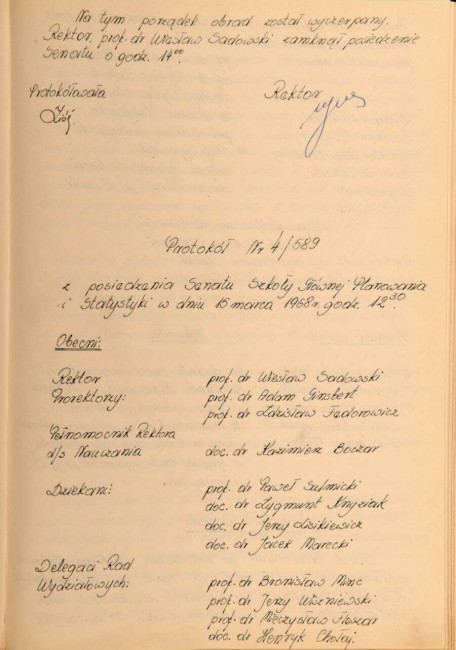 Na tym porządek obrad został wyczerpany.
Rektor, prof. dr Wiesław Sadowski zamknął posiedzenie
Senatu o godz. 14⁰⁰.
Protokółowała
Rektor
Protokół Nr 4/589
z posiedzenia Senatu Szkoły Głównej Planowania
i Statystyki w dniu 15 marca 1968 r. godz. 12³⁰.
Obecni:
Rektor prof. dr Wiesław Sadowski
Prorektorzy: prof. dr Adam Ginsbert
prof. dr Zdzisław Fedorowicz
Pełnomocnik Rektora
d/s Nauczania doc. dr Kazimierz Boczar
Dziekani: prof. dr Paweł Sulmicki
doc. dr Zygmunt Knyziak
doc. dr Jerzy Lisikiewicz
doc. dr Jacek Marecki
Delegaci Rad
Wydziałowych: prof. dr Bronisław Minc
prof. dr Jerzy Wiszniewski
prof. dr Mieczysław
doc. dr Henryk Chołaj.